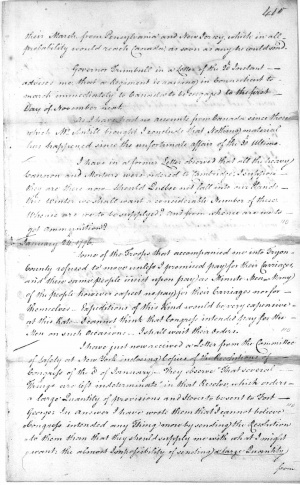 415
their March from Pensylvania and New Jersey, which in all
probability would reach Canada as soon as any he could send
Governor Trumbull in a Letter of the 20 Instant
advises me that a Regiment is raising in Connecticut to
march immediately to Canada to be engaged to the first
Day of November next.
As I have had no accounts from Canada since those
which Mr. Antill brought I conclude that Nothing material
has happened since the unfortunate affair of the 31 Ultimo.
I have in a former Letter observed that all the heavy
Cannon and Mortars were advised to Cambridge
they are there now. Should Quebec not fall into our Hands
this Winter we shall want a considerable Number of these
Where are we to be supplied? and from whence are we to
get ammunition?
January 24. 1776.
Some of the Troops that accompanied me into Tryon
County refused to move unless I promised pay for their Carriages,
and these same people insist upon pay as Minute Men. Many
of the people however expect no pay for their Carriages nor for
themselves. Expeditions of this Kind would be very expensive
at this Rate. I cannot think that Congress intended pay for the
Men on such Occasions. I shall wait their Orders.
I have just now received a Letter from the Committee
of Safety at New York inclosing Copies of the Resolutions of
Congress of the 8 of January. They observe that several
Things are left indeterminate in that Resolve which orders
a large Quantity of provisions and Stores to be sent to Fort
George. In Answer I have wrote them that I cannot believe
Congress intended any Thing more by sending the Resolution
to them than that they should supply me with what I might
want; the almost Impossibility of sending a large Quantity
from